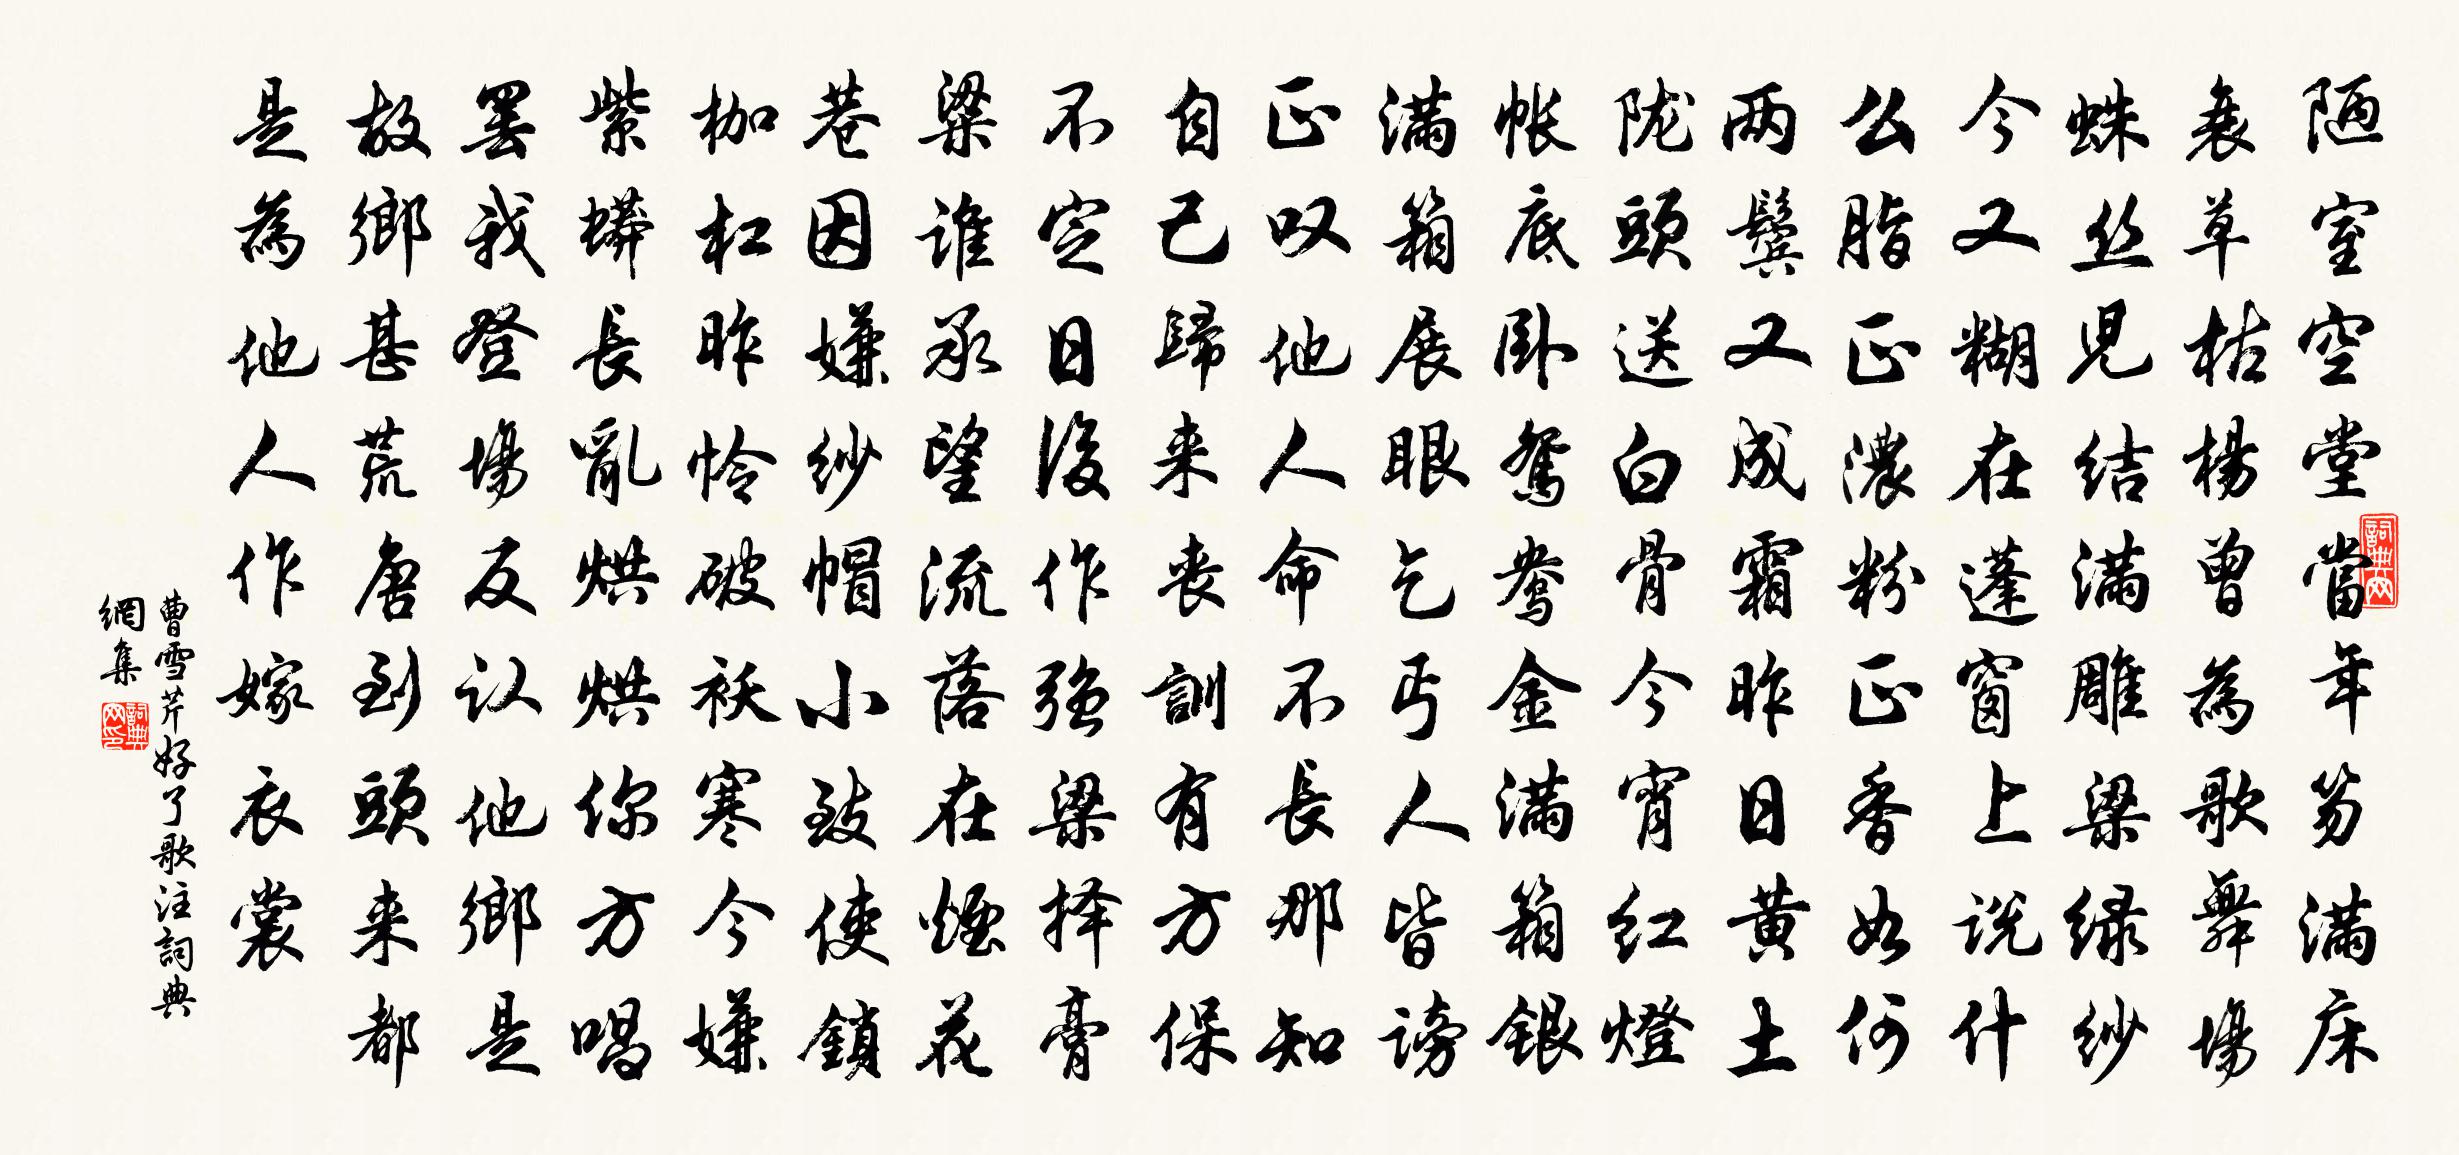 陋室空堂當年笏满床
衰草枯楊曾為歌舞場
蛛丝児结满雕梁绿纱
今又糊在蓬窗上说什
么脂正濃粉正香如何
两鬓又成霜昨日黄土
陇頭送白骨今宵红燈
帐底卧鸳鸯金满箱银
满箱展眼乞丐人皆谤
正叹他人命不長那知
自己歸来丧訓有方保
不定日後作强梁择膏
梁谁承望流落在煙花
巷因嫌纱帽小致使鎖
枷杠昨怜破袄寒今嫌
紫蟒長亂烘烘你方唱
罢我登場反认他鄉是
故鄉甚荒唐到頭来都
是為他人作嫁衣裳
曹雪芹好了歌注詞典
網集
詞典网
詞典网印